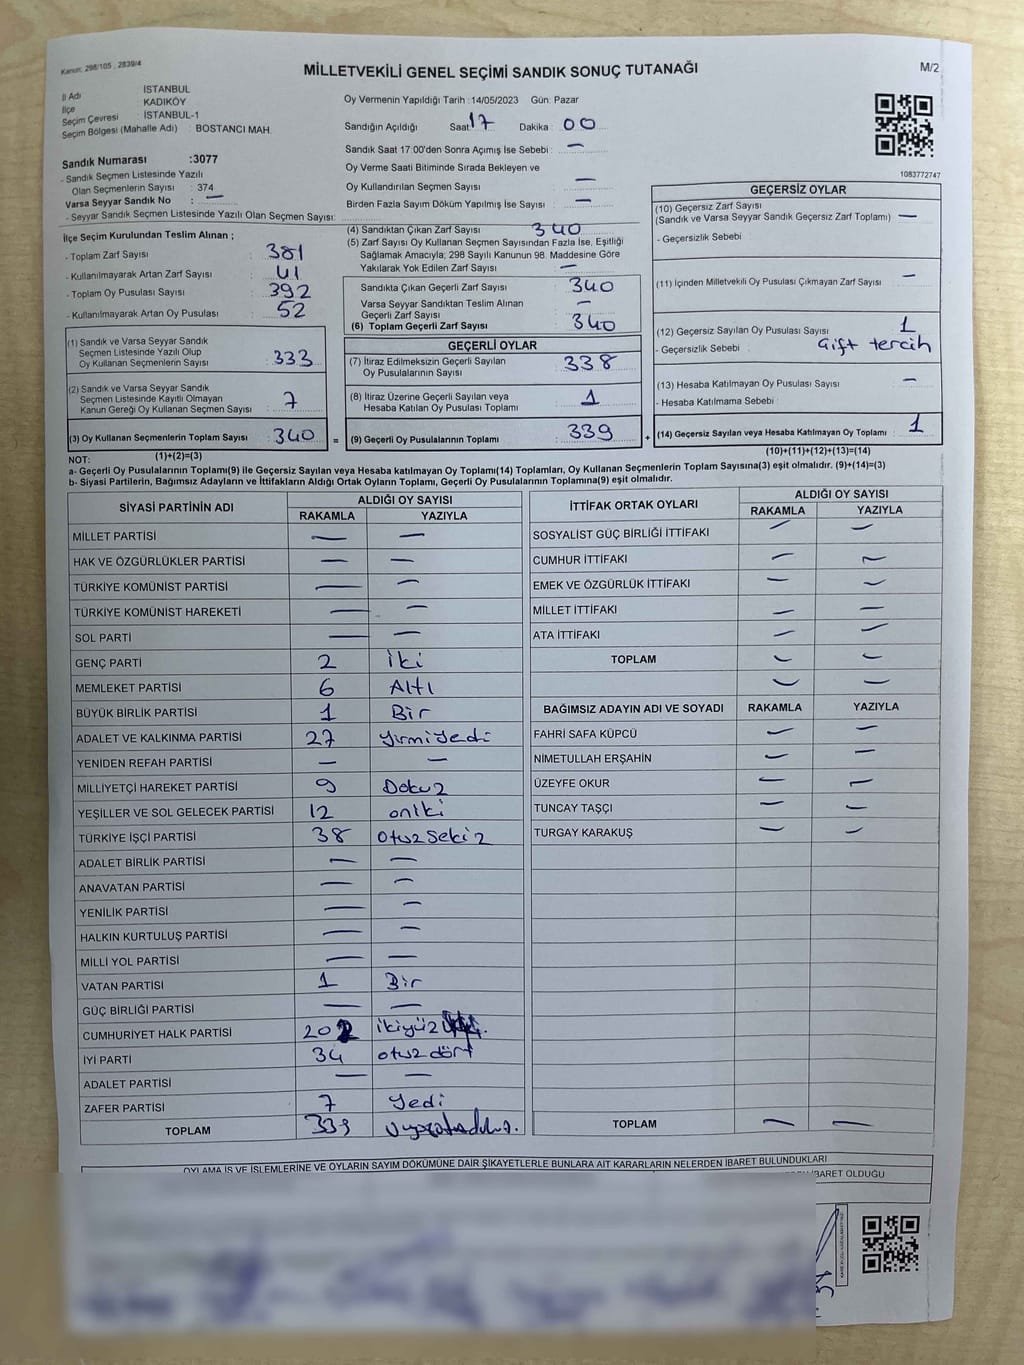 Kanun: 298/105 , 2839/4
MİLLETVEKİLİ GENEL SEÇİMİ SANDIK SONUÇ TUTANAĞI
M/2
İl Adı İSTANBUL
İlçe KADIKÖY
Seçim Çevresi İSTANBUL-1
Seçim Bölgesi (Mahalle Adı) : BOSTANCI MAH.
Oy Vermenin Yapıldığı Tarih :14/05/2023 Gün: Pazar
Sandığın Açıldığı Saat 17 Dakika : 00
Sandık Saat 17:00'den Sonra Açımış İse Sebebi : —
Oy Verme Saati Bitiminde Sırada Bekleyen ve
Oy Kullandırılan Seçmen Sayısı : —
Birden Fazla Sayım Döküm Yapılmış İse Sayısı : —
1083772747
Sandık Numarası :3077
- Sandık Seçmen Listesinde Yazılı
Olan Seçmenlerin Sayısı : 374
Varsa Seyyar Sandık No : —
- Seyyar Sandık Seçmen Listesinde Yazılı Olan Seçmen Sayısı:
İlçe Seçim Kurulundan Teslim Alınan ;
- Toplam Zarf Sayısı : 381
- Kullanılmayarak Artan Zarf Sayısı : 41
- Toplam Oy Pusulası Sayısı : 392
- Kullanılmayarak Artan Oy Pusulası : 52
(1) Sandık ve Varsa Seyyar Sandık
Seçmen Listesinde Yazılı Olup
Oy Kullanan Seçmenlerin Sayısı : 333
(2) Sandık ve Varsa Seyyar Sandık
Seçmen Listesinde Kayıtlı Olmayan
Kanun Gereği Oy Kullanan Seçmen Sayısı : 7
(3) Oy Kullanan Seçmenlerin Toplam Sayısı : 340 =
(1)+(2)=(3)
(4) Sandıktan Çıkan Zarf Sayısı : 340
(5) Zarf Sayısı Oy Kullanan Seçmen Sayısından Fazla İse, Eşitliği
Sağlamak Amacıyla; 298 Sayılı Kanunun 98. Maddesine Göre
Yakılarak Yok Edilen Zarf Sayısı : —
Sandıkta Çıkan Geçerli Zarf Sayısı : 340
Varsa Seyyar Sandıktan Teslim Alınan
Geçerli Zarf Sayısı : —
(6) Toplam Geçerli Zarf Sayısı : 340
GEÇERLİ OYLAR
(7) İtiraz Edilmeksizin Geçerli Sayılan
Oy Pusulalarının Sayısı : 338
(8) İtiraz Üzerine Geçerli Sayılan veya
Hesaba Katılan Oy Pusulası Toplamı : 1
(9) Geçerli Oy Pusulalarının Toplamı : 339 +
GEÇERSİZ OYLAR
(10) Geçersiz Zarf Sayısı
(Sandık ve Varsa Seyyar Sandık Geçersiz Zarf Toplamı) : —
- Geçersizlik Sebebi :
(11) İçinden Milletvekili Oy Pusulası Çıkmayan Zarf Sayısı : —
(12) Geçersiz Sayılan Oy Pusulası Sayısı : 1
- Geçersizlik Sebebi : Çift tercih
(13) Hesaba Katılmayan Oy Pusulası Sayısı : —
- Hesaba Katılmama Sebebi :
(14) Geçersiz Sayılan veya Hesaba Katılmayan Oy Toplamı : 1
(10)+(11)+(12)+(13)=(14)
NOT:
a- Geçerli Oy Pusulalarının Toplamı(9) ile Geçersiz Sayılan veya Hesaba katılmayan Oy Toplamı(14) Toplamları, Oy Kullanan Seçmenlerin Toplam Sayısına(3) eşit olmalıdır. (9)+(14)=(3)
b- Siyasi Partilerin, Bağımsız Adayların ve İttifakların Aldığı Ortak Oyların Toplamı, Geçerli Oy Pusulalarının Toplamına(9) eşit olmalıdır.
SİYASİ PARTİNİN ADI ALDIĞI OY SAYISI
RAKAMLA YAZIYLA
MİLLET PARTİSİ — —
HAK VE ÖZGÜRLÜKLER PARTİSİ — —
TÜRKİYE KOMÜNİST PARTİSİ — —
TÜRKİYE KOMÜNİST HAREKETİ — —
SOL PARTİ — —
GENÇ PARTİ 2 iki
MEMLEKET PARTİSİ 6 Altı
BÜYÜK BİRLİK PARTİSİ 1 Bir
ADALET VE KALKINMA PARTİSİ 27 yirmiyedi
YENİDEN REFAH PARTİSİ — —
MİLLİYETÇİ HAREKET PARTİSİ 9 Dokuz
YEŞİLLER VE SOL GELECEK PARTİSİ 12 oniki
TÜRKİYE İŞÇİ PARTİSİ 38 otuzsekiz
ADALET BİRLİK PARTİSİ — —
ANAVATAN PARTİSİ — —
YENİLİK PARTİSİ — —
HALKIN KURTULUŞ PARTİSİ — —
MİLLİ YOL PARTİSİ — —
VATAN PARTİSİ 1 Bir
GÜÇ BİRLİĞİ PARTİSİ — —
CUMHURİYET HALK PARTİSİ 202 ikiyüz
İYİ PARTİ 34 otuzdört
ADALET PARTİSİ — —
ZAFER PARTİSİ 7 yedi
TOPLAM 339
İTTİFAK ORTAK OYLARI ALDIĞI OY SAYISI
RAKAMLA YAZIYLA
SOSYALİST GÜÇ BİRLİĞİ İTTİFAKI — —
CUMHUR İTTİFAKI — —
EMEK VE ÖZGÜRLÜK İTTİFAKI — —
MİLLET İTTİFAKI — —
ATA İTTİFAKI — —
TOPLAM — —
— —
BAĞIMSIZ ADAYIN ADI VE SOYADI RAKAMLA YAZIYLA
FAHRİ SAFA KÜPCÜ — —
NİMETULLAH ERŞAHİN — —
ÜZEYFE OKUR — —
TUNCAY TAŞÇI — —
TURGAY KARAKUŞ — —
TOPLAM — —
OYLAMA İŞ VE İŞLEMLERİNE VE OYLARIN SAYIM DÖKÜMÜNE DAİR ŞİKAYETLERLE BUNLARA AİT KARARLARIN NELERDEN İBARET BULUNDUKLARI
İBARET OLDUĞU